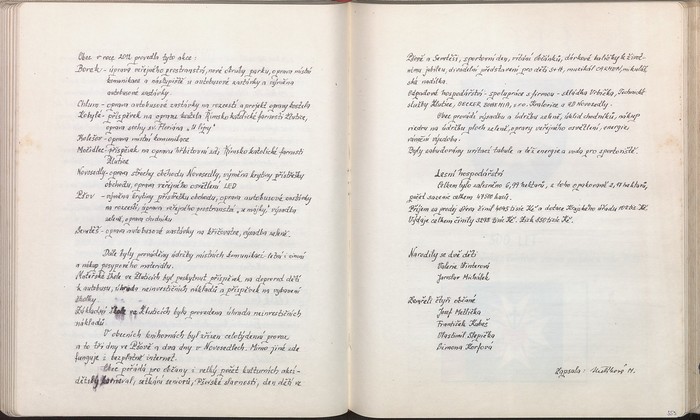 Obec v roce 2012 provedla tyto akce:
Borek - úprava veřejného prostranství, nové druhy parku, oprava místní
komunikace a nástupiště u autobusové zastávky a výměna
autobusové zastávky.
Chlum - oprava autobusové zastávky na rozcestí a projekt opravy kostela
Kobyla - příspěvek na opravu kostela Římskokatolické farnosti Žlutice,
oprava sochy sv. Floriána „U lípy"
Kolešov - oprava místní komunikace
Močidlec - příspěvek na opravu hřbitovní zdi Římskokatolické farnosti
Žlutice
Novosedly - oprava střechy obchodu Novosedly, výměna krytiny přístřešky
obchodu, oprava veřejného osvětlení LED
Pšov - výměna krytiny přístřešku obchodu, oprava autobusové zastávky
na rozcestí, úprava veřejného prostranství „u májky", výsadba
zeleně, oprava chodníku
Semtěš - oprava autobusové zastávky na křižovatce, výsadba zeleně.
Dále byly prováděny údržby místních komunikací letní i zimní
a nákup posypového materiálu.
Mateřské škole ve Žluticích byl poskytnut příspěvek na dopravu dětí
k autobusu, úhrada neinvestičních nákladů a příspěvek na vybavení
školky.
Základní škole ve Žluticích byla provedena úhrada neinvestičních
nákladů.
V obecních knihovnách byl zřízen celotýdenní provoz
a to tři dny ve Pšově a dva dny v Novosedlech. Mimo jiné zde
funguje i bezplatně internet.
Obec pořádá pro občany i velký počet kulturních akcí-
dětský karneval, setkání seniorů, Pšovské slavnosti, den dětí ve
Pšově a Semtěši, sportovní den, vítání občánků, dárkové balíčky k život-
nímu jubileu, divadelní představení pro děti SeM, muzikál CARMEN, mikuláš-
ská nadílka.
Odpadové hospodářství - spolupráce s firmou - skládka Vrbička, Technické
služby Žlutice, BECKER BOHEMIA, s.r.o. Kralovice a KD Novosedly.
Obec provádí výsadbu a údržbu zeleně, úklid chodníků, nákup
nářadí na údržbu ploch zeleně, opravy veřejného osvětlení, energie,
rámcové výpůjčky.
Byly odhodnoceny uvítací tabule a též energie a voda pro sportoviště.
Lesní hospodářství
Celkem bylo zalesněno 6,99 hektarů, z toho opakovaně 2,19 hektarů,
počet sazenic celkem 49 500 kusů.
Příjem za prodej dřeva činil 4043 tisíc Kč a dotace Krajského úřadu 102 tis. Kč.
Výdaje celkem činily 3295 tisíc Kč. Zisk 850 tisíc Kč.
Narodily se dvě děti
Valerie Winterová
Jaroslav Michálek
Zemřeli čtyři občané
Josef Mellička
František Kabeš
Vlastimil Slepička
Simona Korfová
Zapsala: Melíšková M.